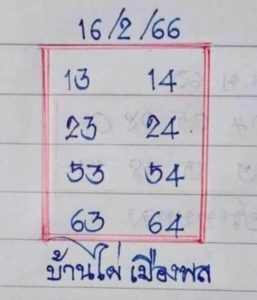 16/2/66
13 14
23 24
53 54
63 64
บ้านไผ่ เมืองพล